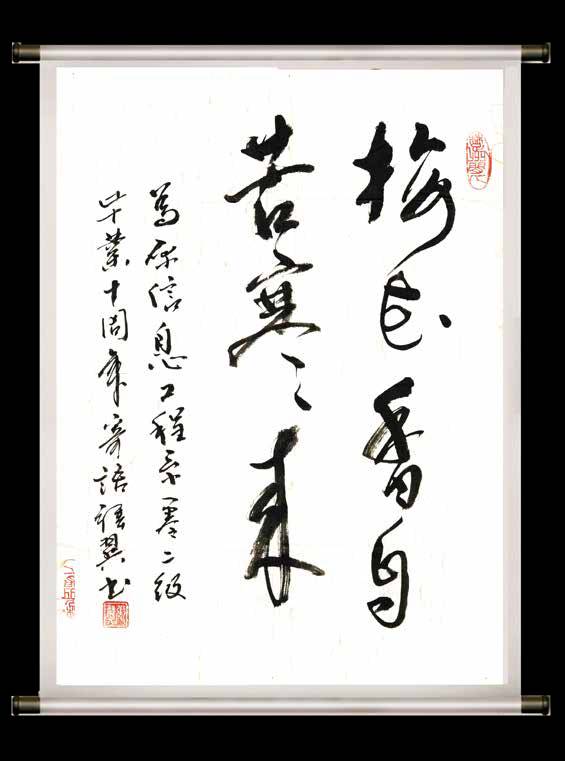 梅花香自
苦寒来
为原信息工程系零二级
毕业十周年寄语 翼书